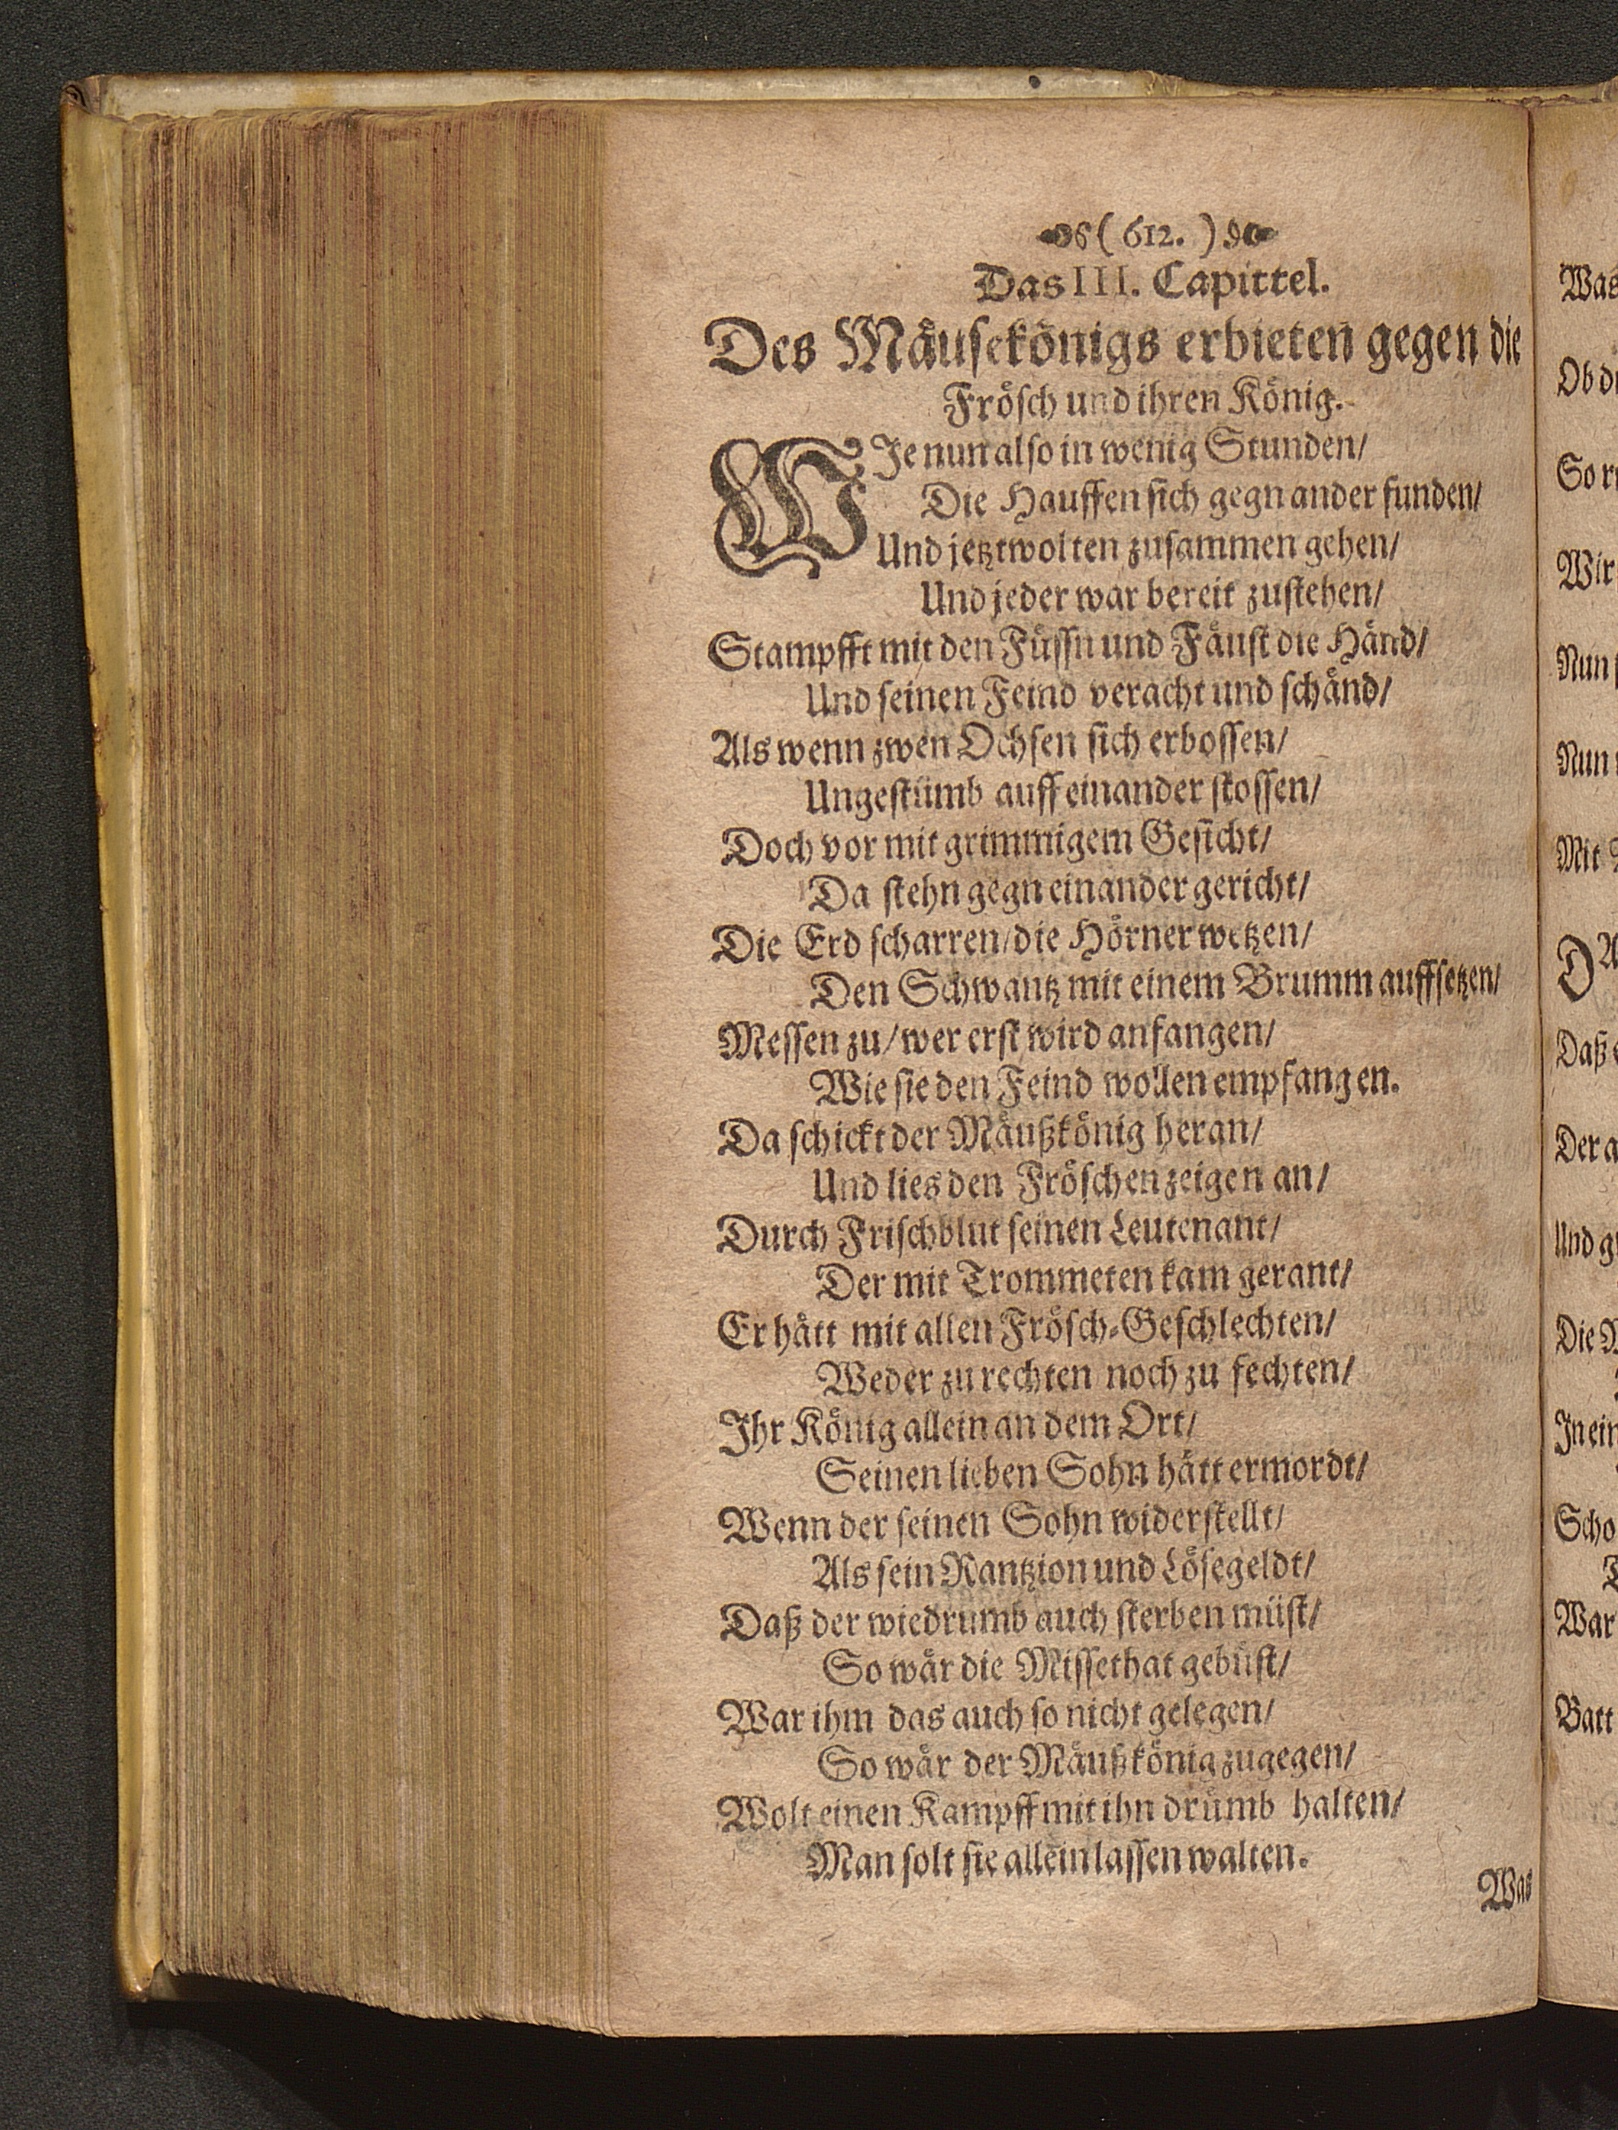 (612.)
Das III. Capittel.
Des Mäusekönigs erbieten gegen die
Frösch und ihren König.
WIe nun also in wenig Stunden/
Die Hauffen sich gegn ander funden/
Und jetzt wolten zusammen gehen/
Und jeder war bereit zustehen/
Stampfft mit den Füssn und Fäust die Händ/
Und seinen Feind veracht und schänd/
Als wenn zwen Ochsen sich erbossen/
Ungestümb auff einander stossen/
Doch vor mit grimmigem Gesicht/
Da stehn gegn einander gericht/
Die Erd scharren/die Hörner wetzen/
Den Schwantz mit einem Brumm auffsetzen/
Messen zu/wer erst wird anfangen/
Wie sie den Feind wollen empfangen.
Da schickt der Mäußkönig heran/
Und lies den Fröschen zeigen an/
Durch Frischblut seinen Leutenant/
Der mit Trommeten kam gerant/
Er hätt mit allen Frösch-Geschlechten/
Weder zu rechten noch zu fechten/
Ihr König allein an dem Ort/
Seinen lieben Sohn hätt ermordt/
Wenn der seinen Sohn widerstellt/
Als sein Rantzion und Lösegeldt/
Daß der wiedrumb auch sterben müst/
So wär die Missethat gebüst/
War ihm das auch so nicht gelegen/
So wär der Mäußkönig zugegen/
Wolt einen Kampff mit ihn drümb halten/
Man solt sie allein lassen walten.
Was
Was
Ob
So
Wir
Nun
Nun
Mit
DA
Daß
Der
Und
Die
In
War